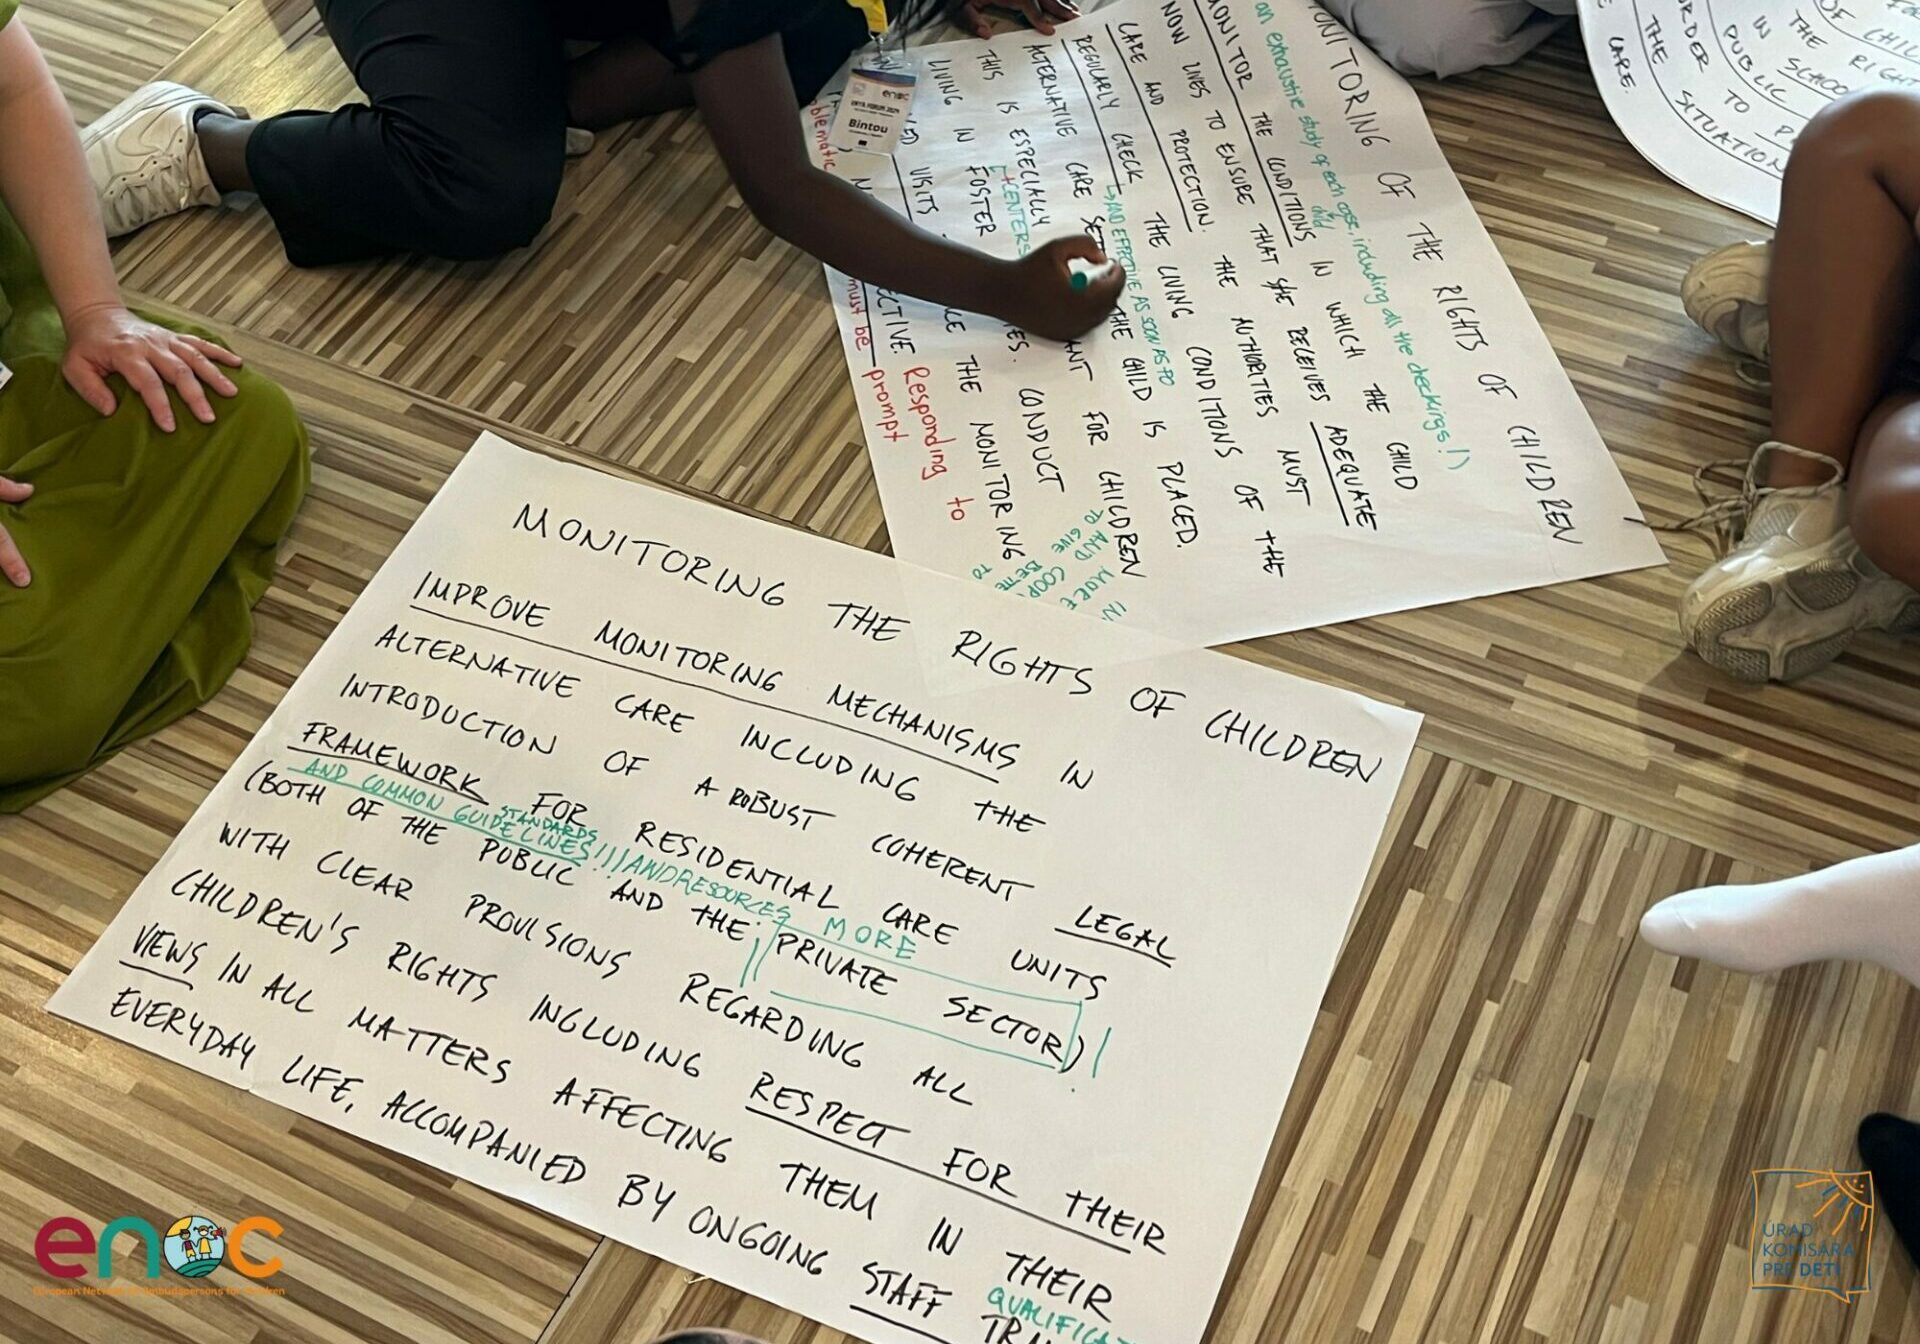 MONITORING THE RIGHTS OF CHILDREN
IMPROVE MONITORING MECHANISMS IN
ALTERNATIVE CARE INCLUDING THE
INTRODUCTION OF A ROBUST COHERENT LEGAL
FRAMEWORK FOR RESIDENTIAL CARE UNITS
AND COMMON GUIDELINES!!! AND RESOURCES MORE
STANDARDS
(BOTH OF THE PUBLIC AND THE PRIVATE SECTOR)!
WITH CLEAR PROVISIONS REGARDING ALL
CHILDREN'S RIGHTS INCLUDING RESPECT FOR THEIR
VIEWS IN ALL MATTERS AFFECTING THEM IN THEIR
EVERYDAY LIFE, ACCOMPANIED BY ONGOING STAFF
MONITORING OF THE RIGHTS OF CHILDREN
an exhaustive study of each case, including all the checkings!)
child
MONITOR THE CONDITIONS IN WHICH THE CHILD
NOW LIVES TO ENSURE THAT S/HE RECEIVES ADEQUATE
CARE AND PROTECTION. THE AUTHORITIES MUST
REGULARLY CHECK THE LIVING CONDITIONS OF THE
AND EFFECTIVE AS SOON AS TO
ALTERNATIVE CARE THE CHILD IS PLACED.
THIS IS ESPECIALLY FOR CHILDREN
+CENTERS
LIVING IN FOSTER CONDUCT
VISITS THE MONITORING
Responding to
must be prompt
TO AND MORE IN
TO GIVE
enoc
Bintou
FOR
OF CHIL
THE RIGHT
IN SCHOO
PUBLIC
ORDER TO
THE SITUATION
CARE.
enoc
European Network of Ombudspersons for Children
ÚRAD
KOMISÁRA
PRE DETI